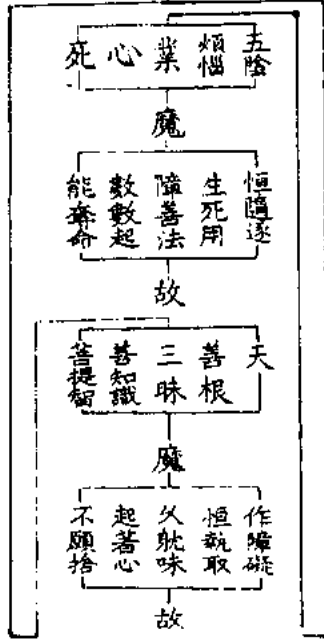 五陰
煩惱
業
心
死
魔
恒隨逐
生死用
障善法
數數起
能奪命
故
天
善根
三昧
善知識
菩提智
魔
作障礙
恒執取
久躭味
起著心
不願捨
故